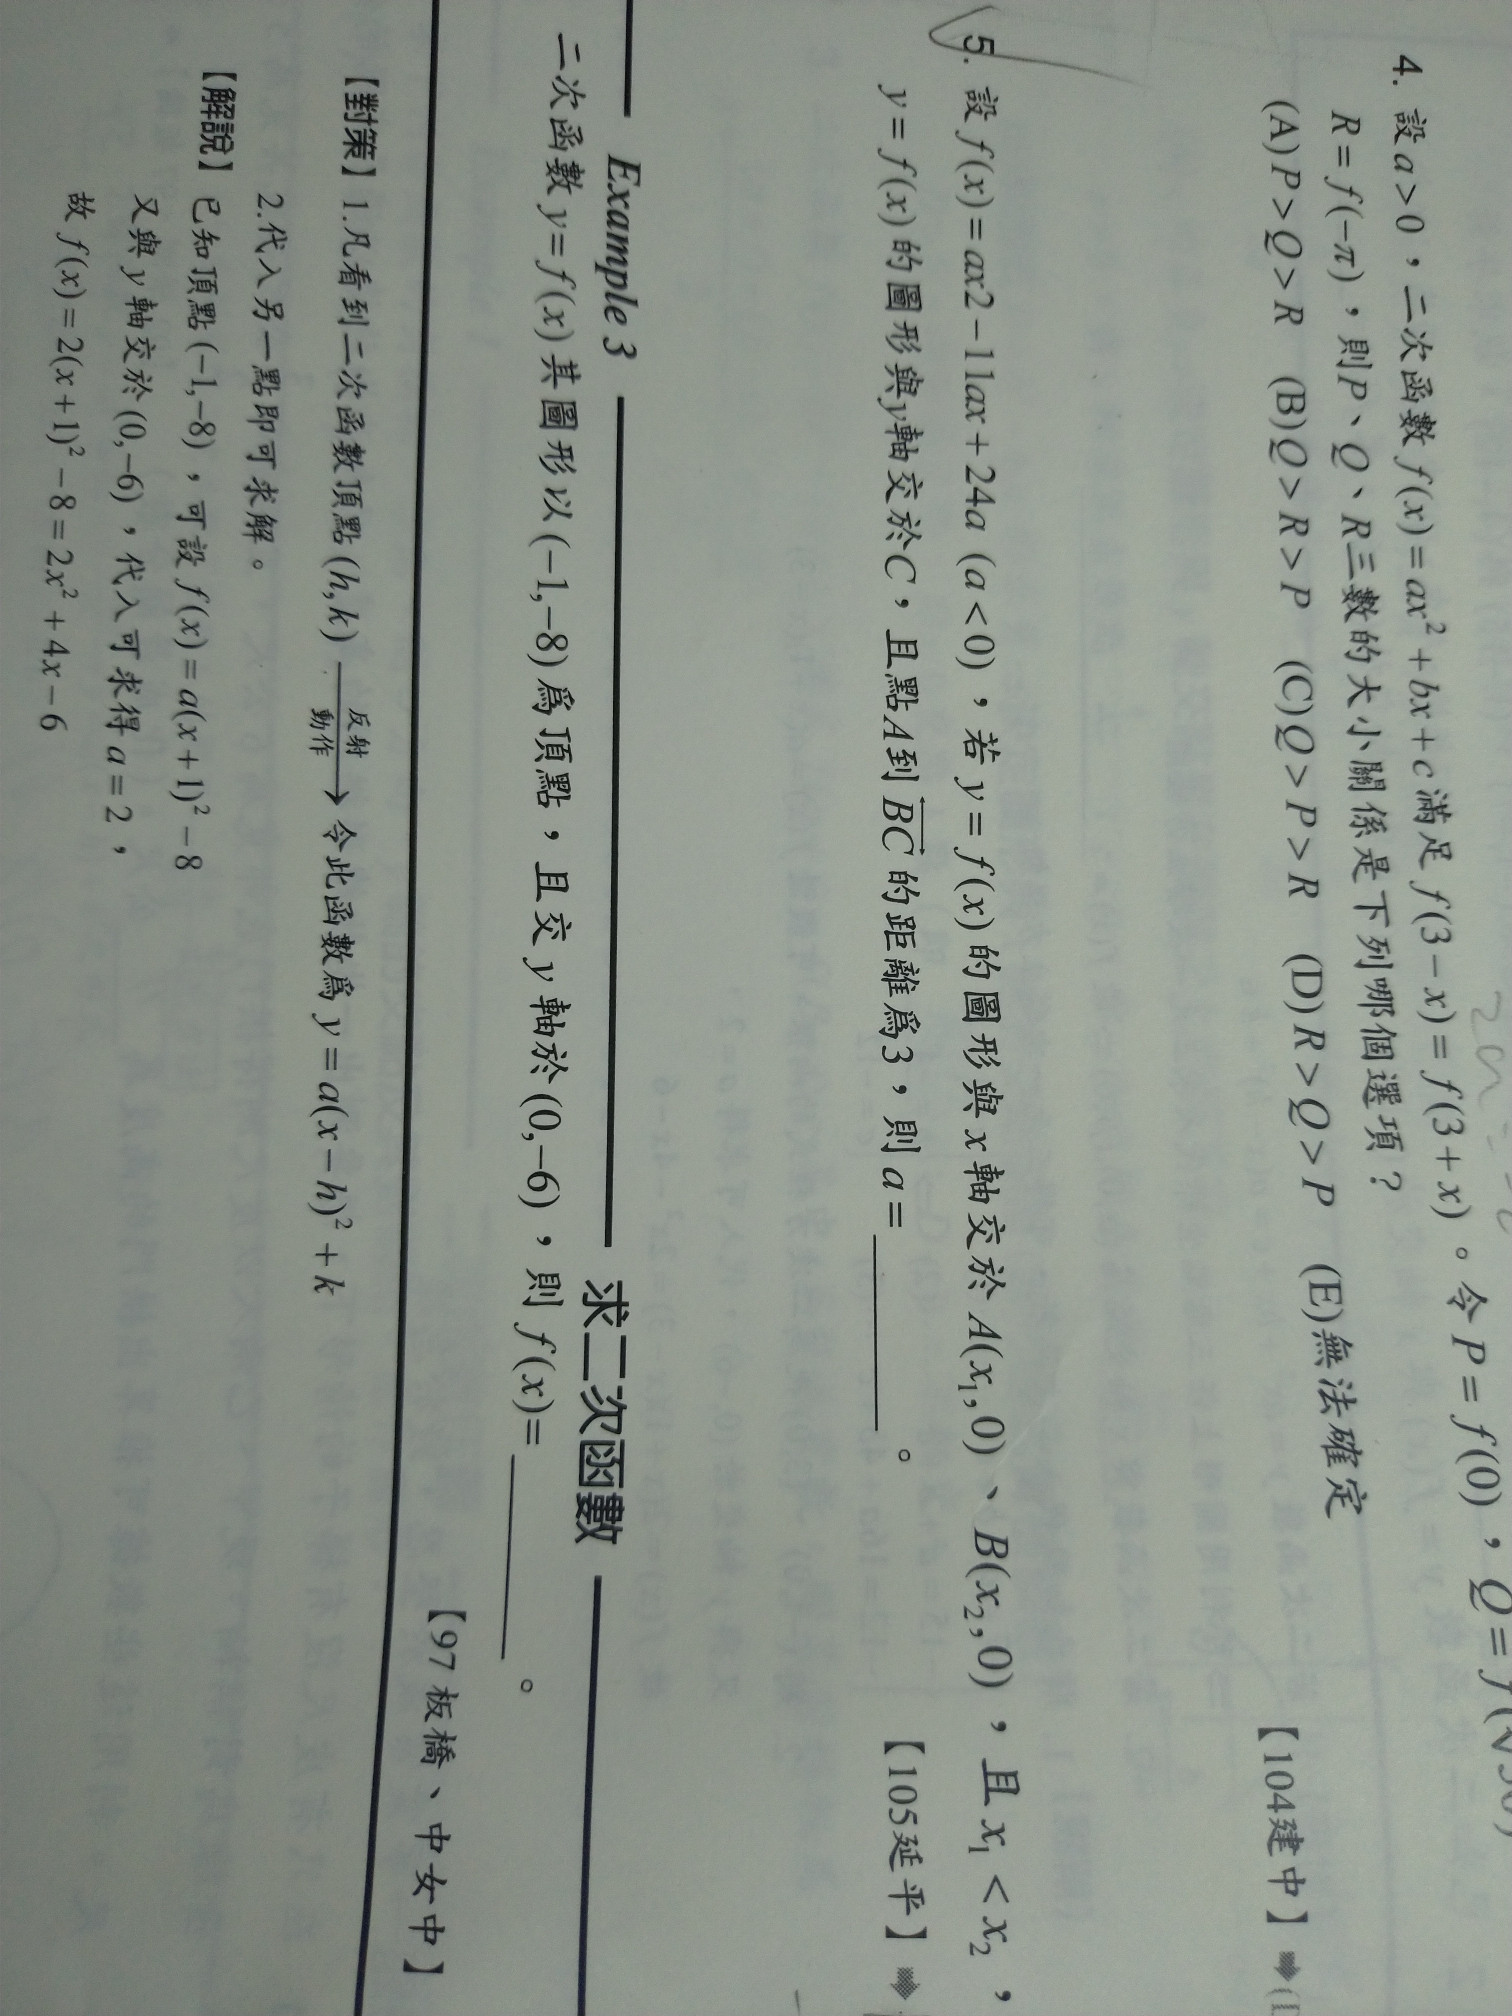 4. 設a>0，二次函數 f(x)=ax²+bx+c 滿足 f(3-x)=f(3+x)。令 P=f(0)，Q=f(
R=f(-π)，則P、Q、R三數的大小關係是下列哪個選項？
(A)P>Q>R (B)Q>R>P (C)Q>P>R (D)R>Q>P (E)無法確定
【104建中】
5. 設 f(x)=ax2-11ax+24a (a<0)，若 y=f(x) 的圖形與 x 軸交於 A(x₁,0)、B(x₂,0)，且 x₁<x₂，
y=f(x) 的圖形與y軸交於C，且點A到 BC 的距離為3，則 a=＿＿＿。 【105延平】
Example 3 求二次函數
二次函數 y=f(x) 其圖形以 (-1,-8) 為頂點，且交 y 軸於 (0,-6)，則 f(x)=＿＿＿。
【97 板橋、中女中】
【對策】1.凡看到二次函數頂點 (h,k) 反射動作→ 令此函數為 y=a(x-h)²+k
2.代入另一點即可求解。
【解說】已知頂點 (-1,-8)，可設 f(x)=a(x+1)²-8
又與 y 軸交於 (0,-6)，代入可求得 a=2，
故 f(x)=2(x+1)²-8=2x²+4x-6